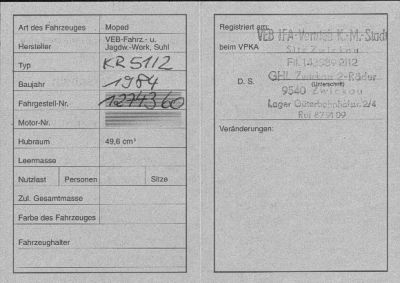 Art des Fahrzeuges Moped
Hersteller VEB-Fahrz.- u. Jagdw.-Werk, Suhl
Typ KR 51/2
Baujahr 1984
Fahrgestell-Nr. 1274360
Motor-Nr.
Hubraum 49,6 cm³
Leermasse
Nutzlast Personen Sitze
Zul. Gesamtmasse
Farbe des Fahrzeuges
Fahrzeughalter
Registriert am:
VEB IFA-Vertrieb K.-M.-Stadt
beim VPKA
Sitz Zwickau
D. S.
GHL Zwickau 2-Räder
(Unterschrift)
9540 Zwickau
Lager Güterbahnhofstr. 2/4
Ruf 67 91 09
Veränderungen: